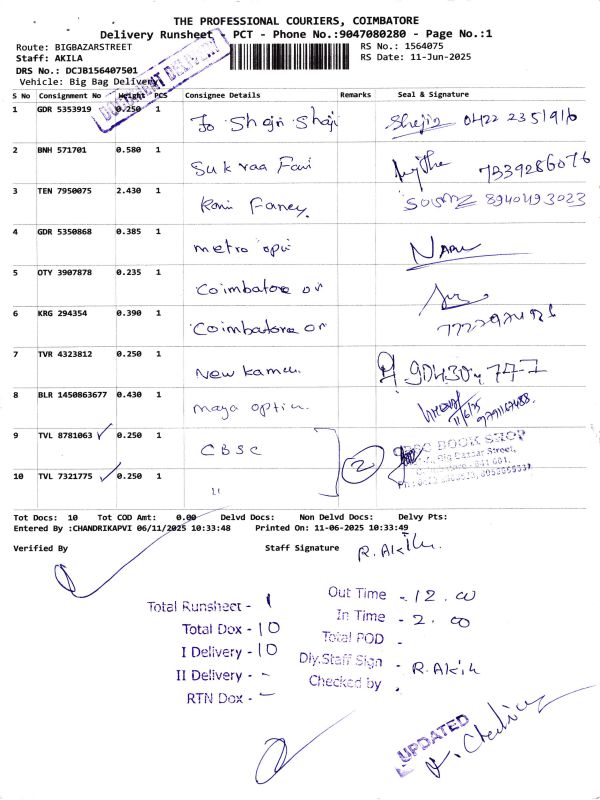 THE PROFESSIONAL COURIERS, COIMBATORE
Delivery Runsheet - PCT - Phone No.:9047080280 - Page No.:1
Route: BIGBAZARSTREET
RS No.: 1564075
Staff: AKILA
RS Date: 11-Jun-2025
DRS No.: DCJB156407501
Vehicle: Big Bag Delivery
DOCUMENT DELIVERY
S No Consignment No Weight PCS Consignee Details Remarks Seal & Signature
1 GDR 5353919 0.250 1 Jo Shoji Shoji Shejin 0422 2351916
2 BNH 571701 0.580 1 Sukraa Favi 7339286076
3 TEN 7950075 2.430 1 Rani Fancy. 8940493023
4 GDR 5350868 0.385 1 metro opti
5 OTY 3907878 0.235 1 Coimbatore or
6 KRG 294354 0.390 1 Coimbatore or
7 TVR 4323812 0.250 1 New kamal
8 BLR 1450863677 0.430 1 maya optic 11/6/25
9 TVL 8781063 0.250 1 CBSC 2 CBSC BOOK SHOP
Big Bazaar Street,
Coimbatore - 641 001.
10 TVL 7321775 0.250 1 "
Tot Docs: 10 Tot COD Amt: 0.00 Delvd Docs: Non Delvd Docs: Delvy Pts:
Entered By :CHANDRIKAPVI 06/11/2025 10:33:48 Printed On: 11-06-2025 10:33:49
Verified By Staff Signature R. Akila
Total Runsheet - 1
Out Time - 12.00
Total Dox - 10
In Time - 2.00
I Delivery - 10
Total POD -
II Delivery - -
Dly.Staff Sign - R. Akila
RTN Dox - -
Checked by
UPDATED